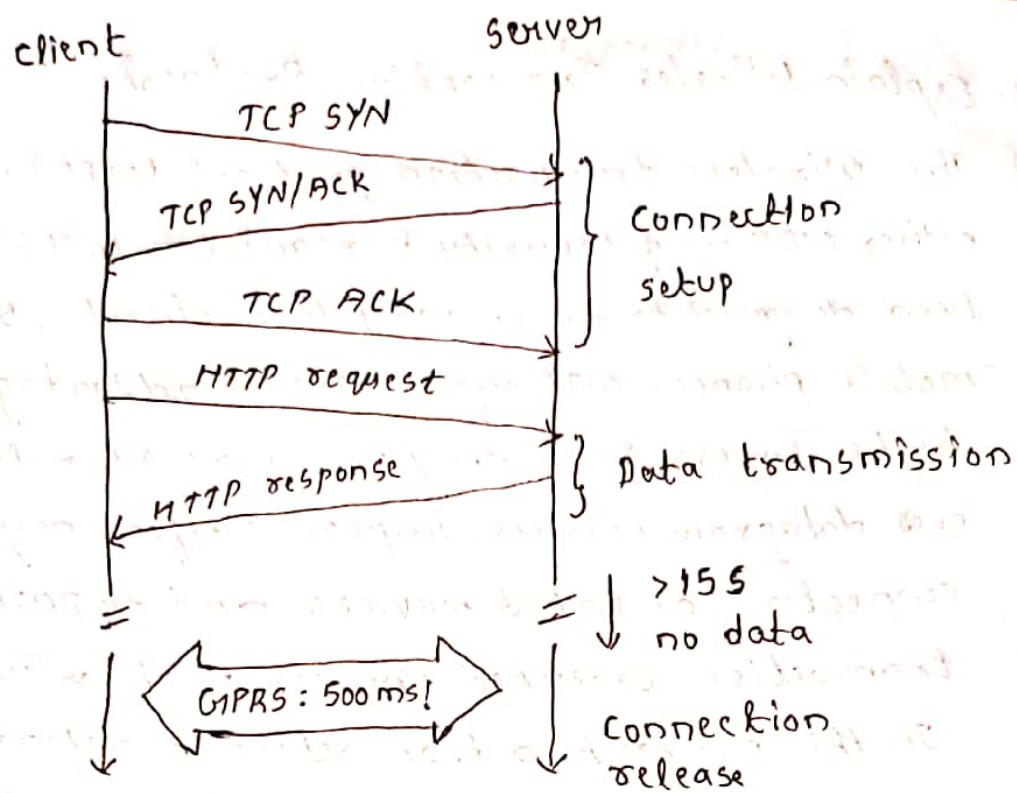 client
server
TCP SYN
TCP SYN/ACK
TCP ACK
connection
setup
HTTP request
HTTP response
Data transmission
>15s
no data
GPRS: 500 ms!
connection
release